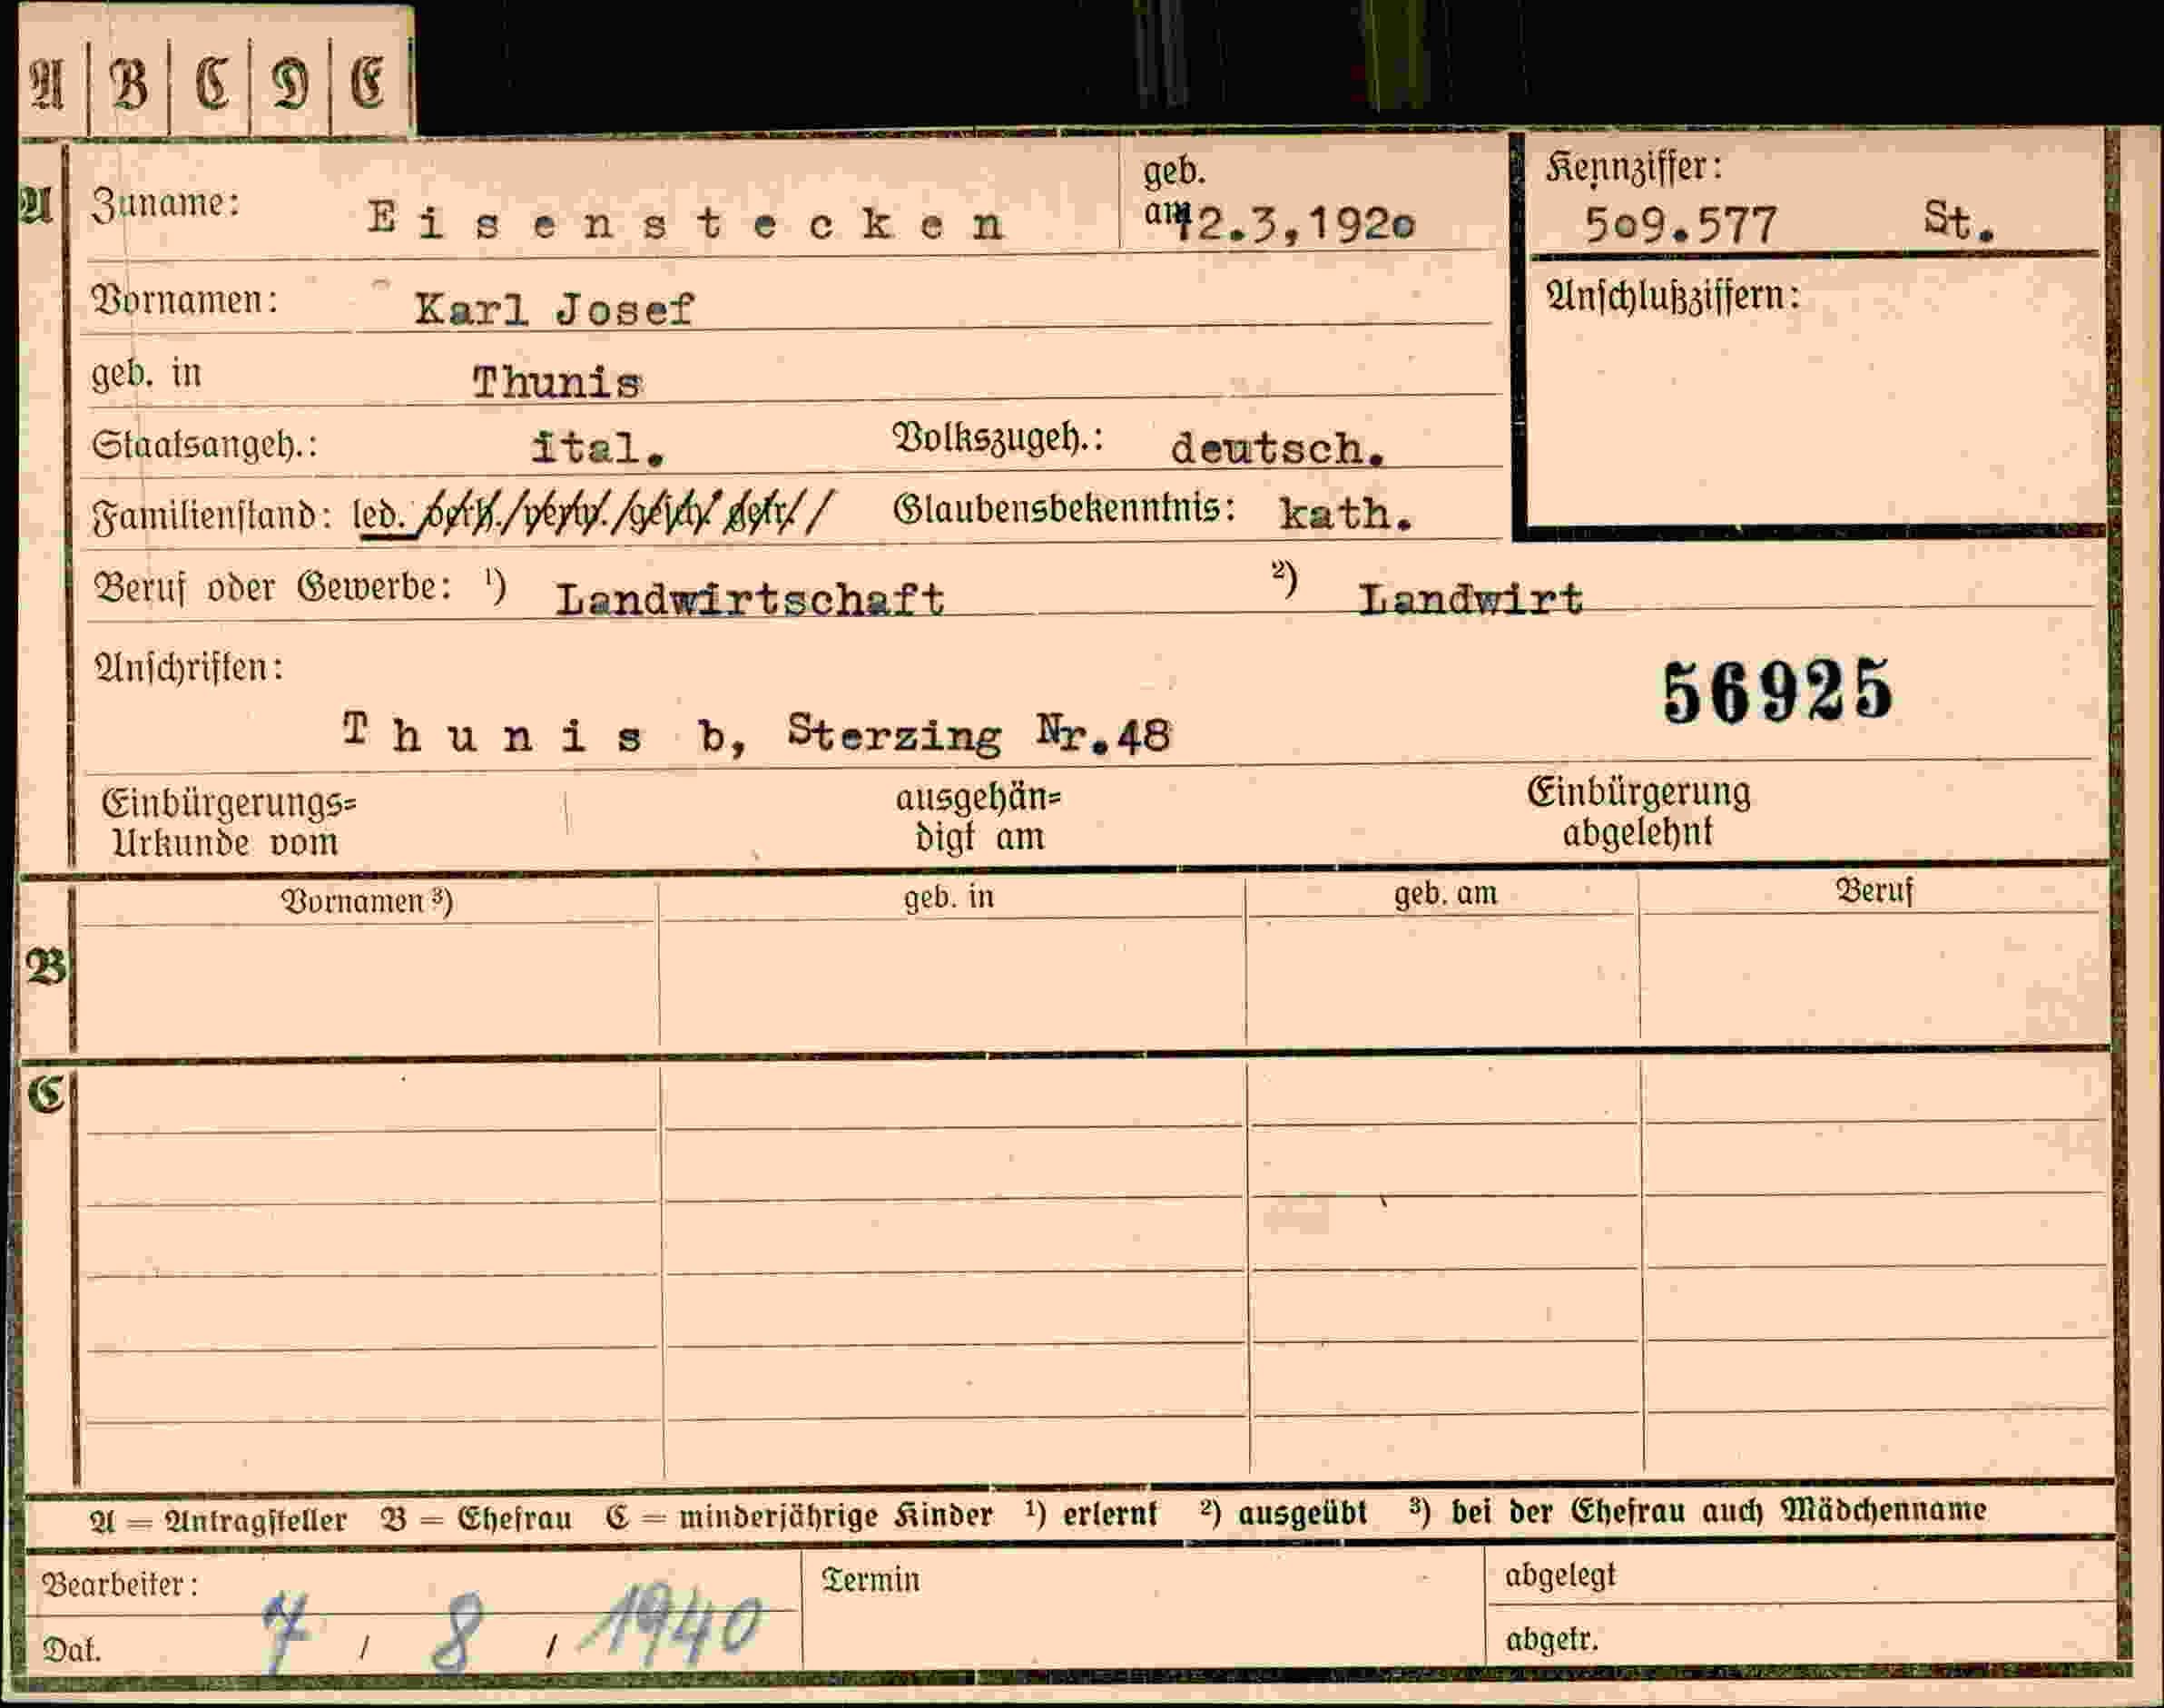 A B C D E
A Zuname: Eisenstecken geb. am 12.3,1920 Kennziffer: 509.577 St.
Vornamen: Karl Josef Anschlußziffern:
geb. in Thunis
Staatsangeh.: ital. Volkszugeh.: deutsch.
Familienstand: led. / verh. / verw. / gesch. / getr. / Glaubensbekenntnis: kath.
Beruf oder Gewerbe: ¹) Landwirtschaft ²) Landwirt
Anschriften: 56925
Thunis b, Sterzing Nr.48
Einbürgerungs= ausgehän= Einbürgerung
Urkunde vom digt am abgelehnt
Vornamen ³) geb. in geb. am Beruf
B
C
A = Antragsteller B = Ehefrau C = minderjährige Kinder ¹) erlernt ²) ausgeübt ³) bei der Ehefrau auch Mädchenname
Bearbeiter: Termin abgelegt
Dat. 7 / 8 / 1940 abgetr.